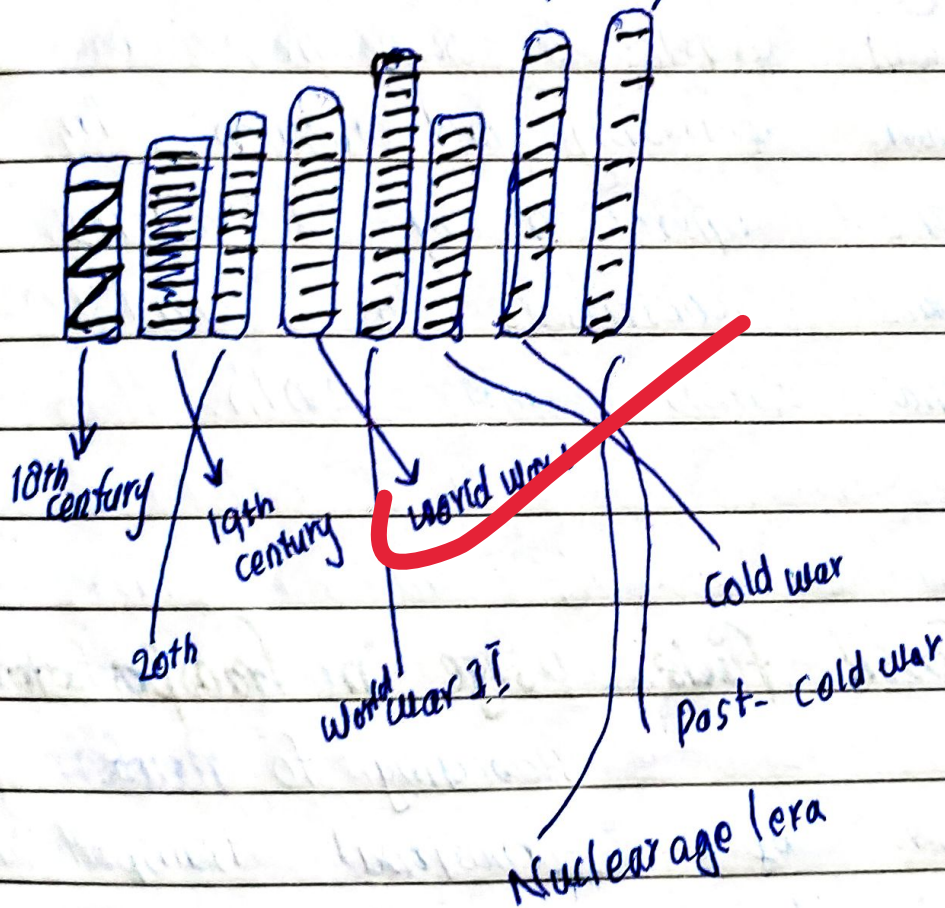 18th
century
19th
century
World War
Cold war
20th
World
war II
Post- Cold war
Nuclear age / era